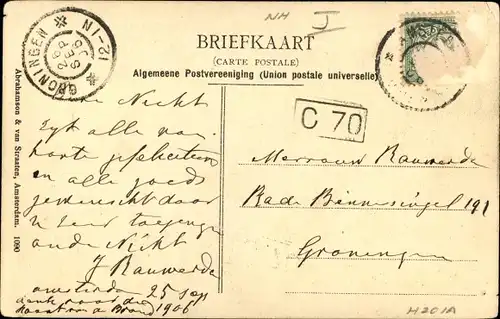 NH
I
GRONINGEN
26 SEP 06
12-1N
BRIEFKAART
(CARTE POSTALE)
Algemeene Postvereeniging (Union postale universelle)
C 70
Abrahamson & van Straaten, Amsterdam. 1090
Nicht
Zijt alle van
harte gefeliciteerd
en alle goeds
gewenscht door
u zeer toegenegen
oude Nicht
J Rauwerda
amsterdam 25 sep
1906
dank voor de
Mevrouw Rauwerda
Bade Binnesingel 191
Groningen
H201A